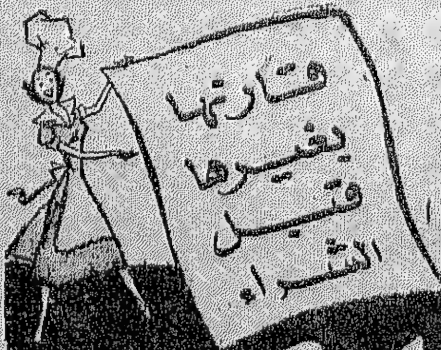 قارنها
بغيرها
قبل
الشراء